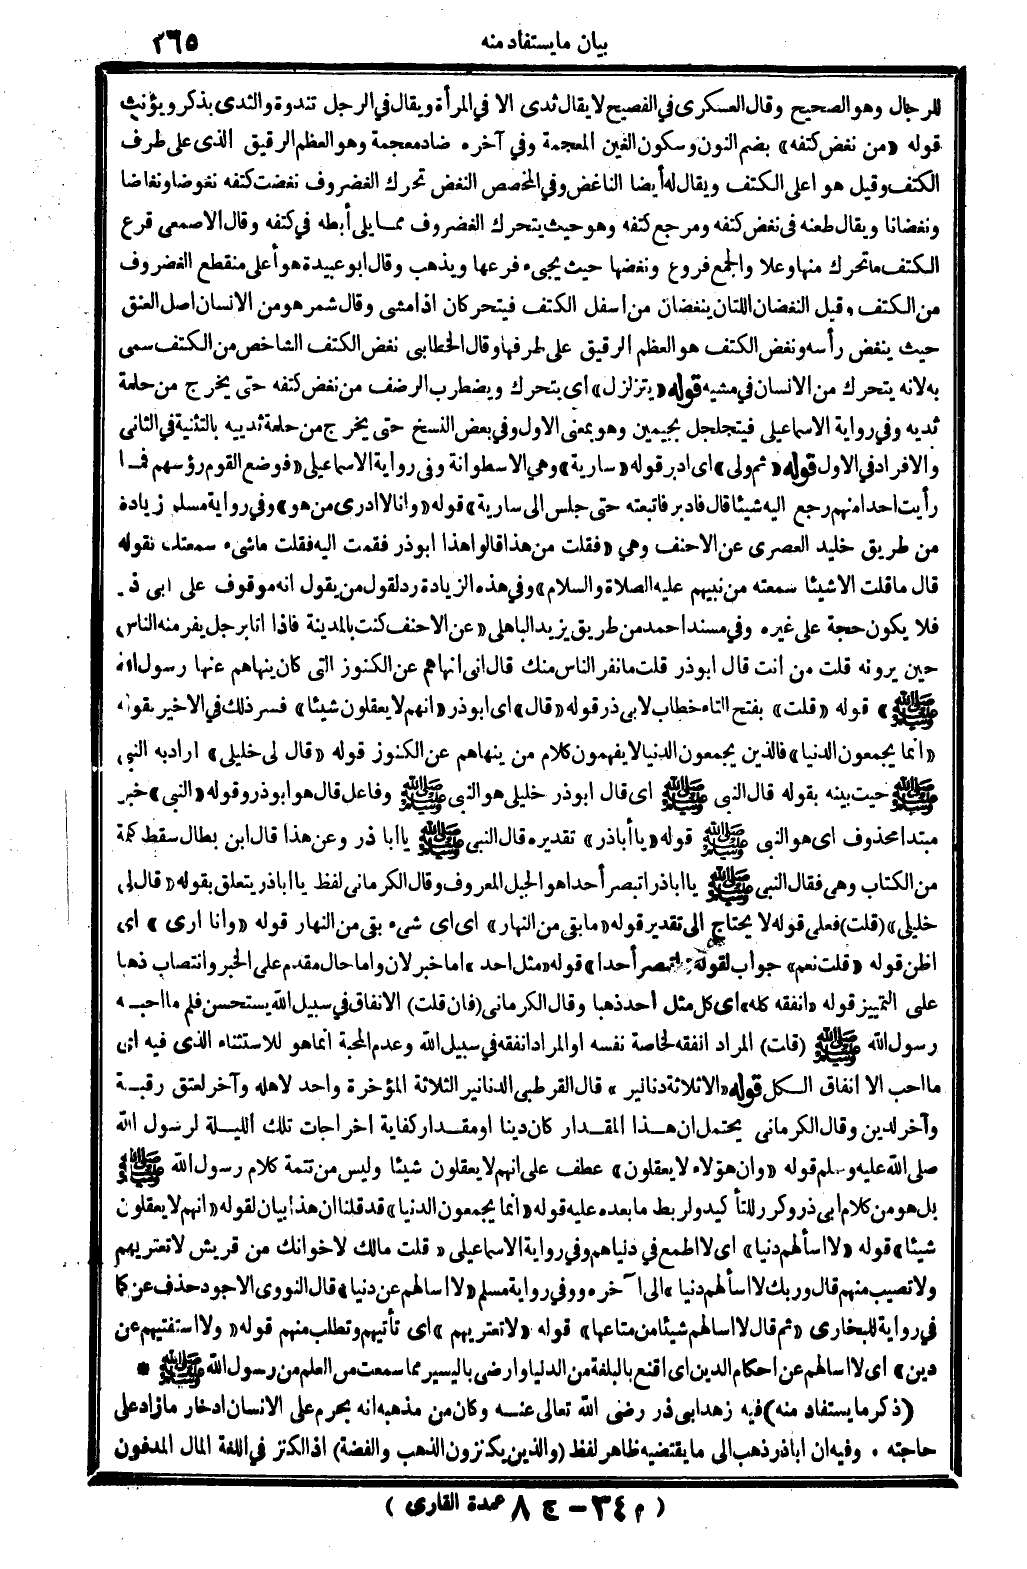 بيان ما يستفاد منه ٢٦٥
للرجال وهو الصحيح وقال العسكرى فى الفصيح لا يقال ثدى الا في المرأة ويقال في الرجل تندوة والثدى يذكر ويؤنث
قوله «من نغض كتفه» بضم النون وسكون الغين المعجمة وفي آخره ضاد معجمة وهو العظم الرقيق الذى على طرف
الكتف وقيل هو اعلى الكتف ويقال له أيضا الناغض وفي المخصص النغض تحرك الغضروف نغضت كتفه نغوضا ونغاضا
ونغضانا ويقال طعنه فى نغض كتفه ومرجع كتفه وهو حيث يتحرك الغضروف مما يلى أبطه في كتفه وقال الاصمعى قرع
الكتف ما تحرك منها وعلا والجمع فروع ونغضها حيث يجىء فرعها ويذهب وقال ابو عبيدة هو أعلى منقطع الغضروف
من الكتف وقيل النغضان اللتان ينغضان من اسفل الكتف فيتحركان اذا مشى وقال شمر هو من الانسان اصل العنق
حيث ينغض رأسه ونغض الكتف هو العظم الرقيق على طرفها وقال الخطابى نغض الكتف الشاخص من الكتف سمى
به لانه يتحرك من الانسان في مشيه قوله «يتزلزل» اى يتحرك ويضطرب الرضف من نغض كتفه حتى يخرج من حلمة
ثديه وفي رواية الاسماعيلى فيتجلجل بجيمين وهو بمعنى الاول وفي بعض النسخ حتى يخرج من حلمة ثدييه بالتثنية في الثانى
والافراد في الاول قوله «ثم ولى» اى ادبر قوله «سارية» وهي الاسطوانة وفى رواية الاسماعيلى «فوضع القوم رؤسهم فما
رأيت احدا منهم رجع اليه شيئا قال فادبر فاتبعته حتى جلس الى سارية» قوله «وانا لا ادرى من هو» وفي رواية مسلم زيادة
من طريق خليد العصرى عن الاحنف وهي «فقلت من هذا قالوا هذا ابو ذر فقمت اليه فقلت ما شىء سمعتك تقوله
قال ما قلت الا شيئا سمعته من نبيهم عليه الصلاة والسلام» وفي هذه الزيادة رد لقول من يقول انه موقوف على ابى ذر
فلا يكون حجة على غيره وفي مسند احمد من طريق يزيد الباهلى «عن الاحنف كنت بالمدينة فاذا انا برجل يفر منه الناس
حين يرونه قلت من أنت قال ابو ذر قلت ما نفر الناس منك قال انى انهاهم عن الكنوز التى كان ينهاهم عنها رسول الله
ﷺ» قوله «قلت» بفتح التاء خطاب لابى ذر قوله «قال» اى ابو ذر «انهم لا يعقلون شيئا» فسر ذلك في الاخير بقوله
«انما يجمعون الدنيا» فالذين يجمعون الدنيا لا يفهمون كلام من ينهاهم عن الكنوز قوله «قال لى خليلى» اراد به النبى
ﷺ حيث بينه بقوله قال النبى ﷺ اى قال ابو ذر خليلى هو النبى ﷺ وفاعل قال هو ابو ذر وقوله «النبى» خبر
مبتدا محذوف اى هو النبى ﷺ قوله «يا أباذر» تقديره قال النبى ﷺ يا ابا ذر وعن هذا قال ابن بطال سقط كلمة
من الكتاب وهى فقال النبى ﷺ يا اباذر اتبصر أحدا هو الجبل المعروف وقال الكرمانى لفظ يا اباذر يتعلق بقوله «قال لى
خليلى» (قلت) فعلى قوله لا يحتاج الى تقدير قوله «ما بقى من النهار» اى اى شىء بقى من النهار قوله «وأنا ارى» اى
اظن قوله «قلت نعم» جواب لقوله «اتبصر أحدا» قوله «مثل احد» اما خبر لان واما حال مقدم على الخبر وانتصاب ذهبا
على التمييز قوله «انفقه كله» اى كل مثل أحد ذهبا وقال الكرمانى (فان قلت) الانفاق في سبيل الله يستحسن فلم ما احبه
رسول الله ﷺ (قلت) المراد انفقه لخاصة نفسه او المراد انفقه في سبيل الله وعدم المحبة انما هو للاستثناء الذى فيه اى
ما احب الا انفاق الكل قوله «الا ثلاثة دنانير» قال القرطبى الدنانير الثلاثة المؤخرة واحد لاهله وآخر لعتق رقبة
وآخر لدين وقال الكرمانى يحتمل ان هذا المقدار كان دينا او مقدار كفاية اخراجات تلك الليلة لرسول الله
صلى الله عليه وسلم قوله «وان هؤلاء لا يعقلون» عطف على انهم لا يعقلون شيئا وليس من تتمة كلام رسول الله ﷺ
بل هو من كلام أبى ذر وكرر للتأكيد ولربط ما بعده عليه قوله «انما يجمعون الدنيا» قد قلنا ان هذا بيان لقوله «انهم لا يعقلون
شيئا» قوله «لا اسألهم دنيا» اى لا اطمع في دنياهم وفي رواية الاسماعيلى «قلت مالك لاخوانك من قريش لا تعتريهم
ولا تصيب منهم قال وربك لا اسألهم دنيا» الى آخره ووفي رواية مسلم «لا اسالهم عن دنيا» قال النووى الاجود حذف عن كما
في رواية للبخارى «ثم قال لا اسالهم شيئا من متاعها» قوله «لا تعتريهم» اى تأتيهم وتطلب منهم قوله «ولا استفتيهم عن
دين» اى لا اسالهم عن احكام الدين اى اقنع بالبلغة من الدنيا وارضى باليسير مما سمعت من العلم من رسول الله ﷺ *
(ذكر ما يستفاد منه) فيه زهد ابى ذر رضى الله تعالى عنه وكان من مذهبه انه يحرم على الانسان ادخار ما زاد على
حاجته . وفيه ان اباذر ذهب الى ما يقتضيه ظاهر لفظ (والذين يكنزون الذهب والفضة) اذ الكنز في اللغة المال المدفون
(م ٣٤ – ج ٨ عمدة القارى)